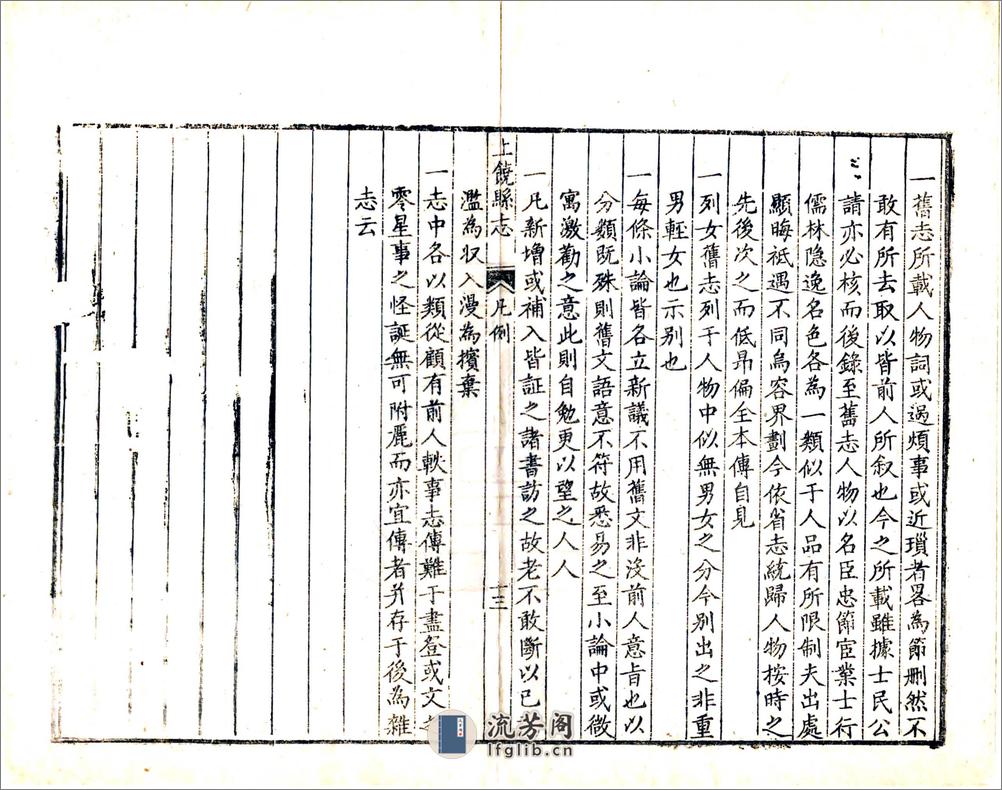 一舊志所載人物詞或過煩事或近瑣者畧為節刪然不
敢有所去取以皆前人所叙也今之所載雖據士民公
請亦必核而後錄至舊志人物以名臣忠節宦業士行
儒林隐逸名色各為一類似于人品有所限制夫出處
顯晦祗遇不同烏容界劃今依省志統歸人物按時之
先後次之而低昂偏全本傳自見
一列女舊志列于人物中似無男女之分今別出之非重
男輊女也示别也
一每條小論皆各立新議不用舊文非沒前人意旨也以
分類既殊則舊文語意不符故悉易之至小論中或微
寓激勸之意此則自勉更以望之人人
一凡新增或補入皆証之諸書訪之故老不敢斷以已
上饒縣志 凡例 十三
濫為収入漫為擯棄
一志中各以類從顧有前人軼事志傳難于盡登或文
零星事之怪誕無可附麗而亦宜傳者并存于後為雜
志云
流芳阁
lfglib.cn